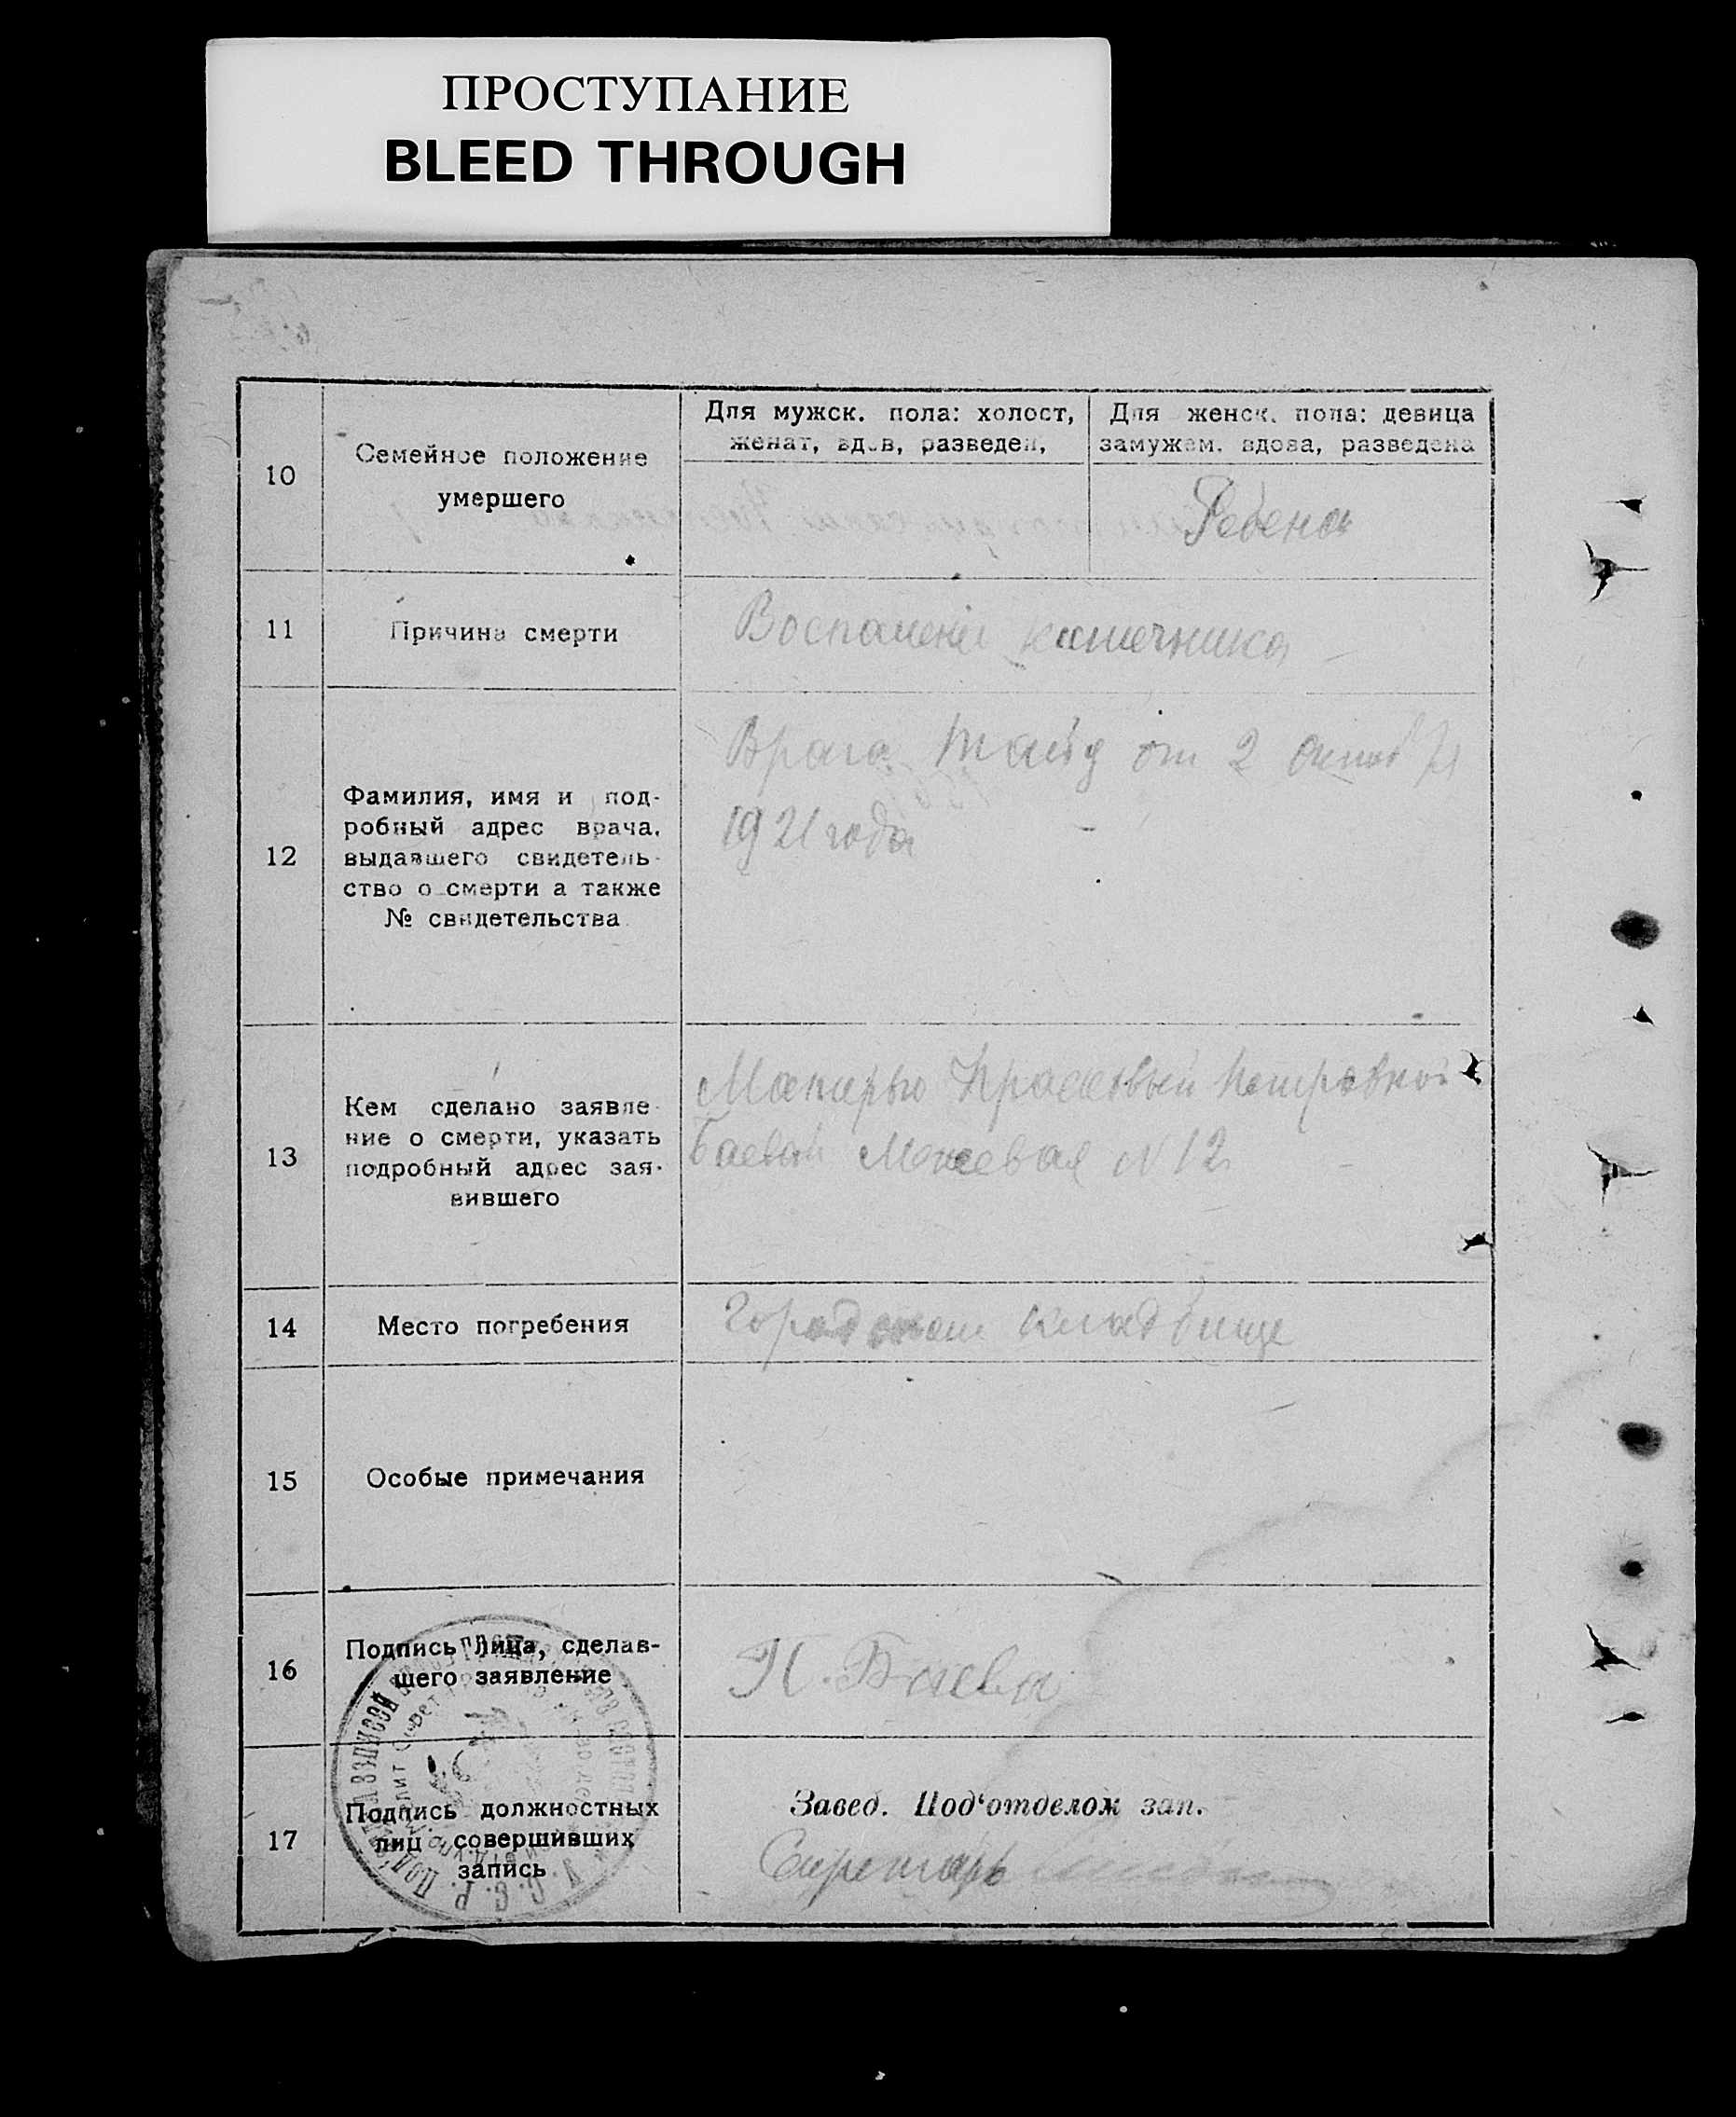 ПРОСТУПАНИЕ
BLEED THROUGH
10
Семейное положение
умершего
Для мужск. пола: холост,
женат, вдов, разведен,
Для женск. пола: девица
замужем. вдова, разведена
Ребенок
11
Причина смерти
Воспаление кишечника
12
Фамилия, имя и под-
робный адрес врача,
выдавшего свидетель-
ство о смерти а также
№ свидетельства
Врача от 2 октяб
1921 года
13
Кем сделано заявле-
ние о смерти, указать
подробный адрес зая-
вившего
Матерью Прасковьей Петровной
Баевой Межевая N 12
14
Место погребения
Городском кладбище
15
Особые примечания
16
Подпись лица, сделав-
шего заявление
П. Баева
17
Подпись должностных
лиц совершивших
запись
Завед. Под‘отделом зап.
Секретарь